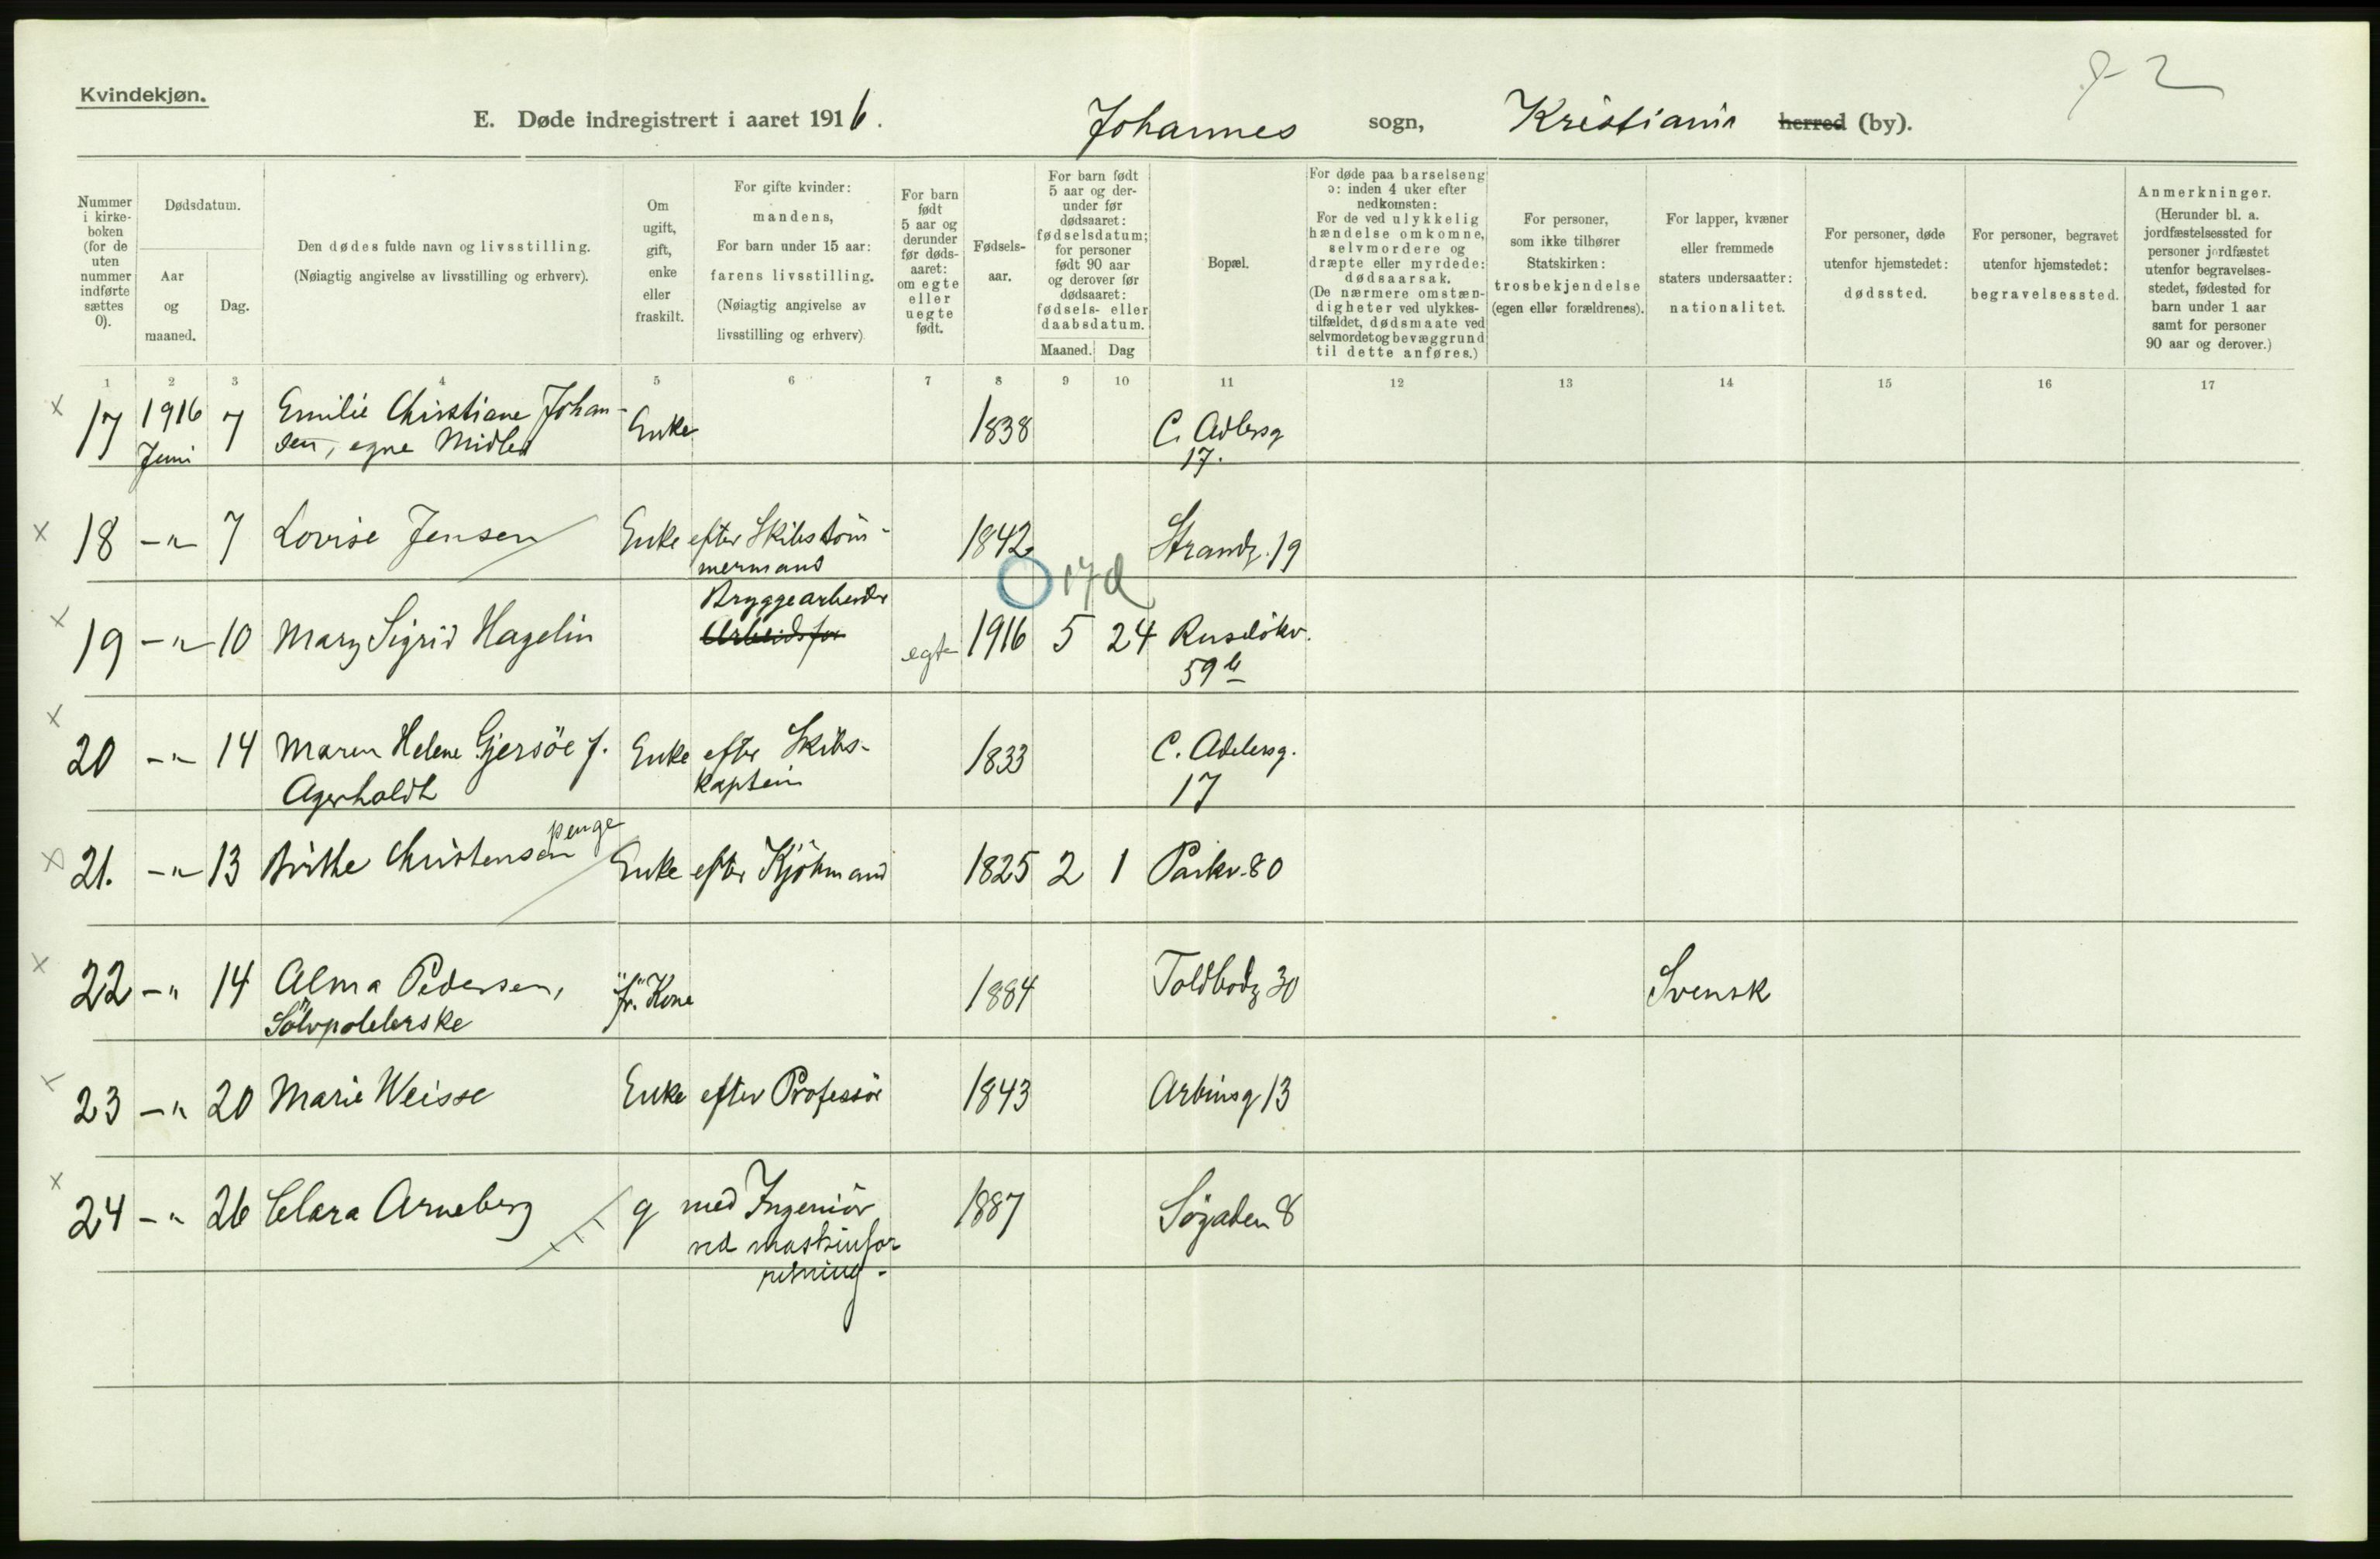 Kvindekjøn.
E. Døde indregistrert i aaret 1916. Johannes sogn, Kristiania herred (by).
2
Nummer i kirkeboken (for de uten nummer indførte sættes 0).
Dødsdatum.
Aar og maaned.
Dag.
Den dødes fulde navn og livsstilling.
(Nøiagtig angivelse av livsstilling og erhverv).
Om ugift, gift, enke eller fraskilt.
For gifte kvinder: mandens,
For barn under 15 aar: farens livsstilling.
(Nøiagtig angivelse av livsstilling og erhverv)
For barn født 5 aar og derunder før dødsaaret: om egte eller uegte født.
Fødselsaar.
For barn født 5 aar og derunder før dødsaaret: fødselsdatum; for personer født 90 aar og derover før dødsaaret: fødsels- eller daabsdatum.
Maaned. Dag
Bopæl.
For døde paa barselseng ɔ: inden 4 uker efter nedkomsten:
For de ved ulykkelig hændelse omkomne, selvmordere og dræpte eller myrdede: dødsaarsak.
(De nærmere omstændigheter ved ulykkestilfældet, dødsmaate ved selvmordet og bevæggrund til dette anføres.)
For personer, som ikke tilhører Statskirken: trosbekjendelse (egen eller forældrenes).
For lapper, kvæner eller fremmede staters undersaatter: nationalitet.
For personer, døde utenfor hjemstedet: dødssted.
For personer, begravet utenfor hjemstedet: begravelsessted.
Anmerkninger.
(Herunder bl. a. jordfæstelsessted for personer jordfæstet utenfor begravelsesstedet, fødested for barn under 1 aar samt for personer 90 aar og derover.)
1 2 3 4 5 6 7 8 9 10 11 12 13 14 15 16 17
x 17 1916 Juni 7 Emilie Christiane Johansen, egne Midler Enke 1838 C. Adlersg 17.
x 18 -"- 7 Lovise Jensen Enke efter Skibstömmermand 1842 Strandg. 19
17 d
x 19 -"- 10 Mary Sigrid Hagelin Bryggearbeider Arbeidsfor egte 1916 5 24 Ruseløkv. 59 b
x 20 -"- 14 Maren Helene Gjersöe f. Agerholdt Enke efter Skibskaptein 1833 C. Adelersg. 17
x 21. -"- 13 Birthe Christensen penge Enke efter Kjöbmand 1825 2 1 Parkv. 80
x 22 -"- 14 Alma Pedersen, Sölvpolelerske "fr." Kone 1884 Toldbodg 30 Svensk
x 23 -"- 20 Marie Weisse Enke efter Professor 1843 Arbinsg 13
x 24 -"- 26 Clara Arneberg g med Ingeniör ved maskinforretning. 1887 Sögaden 8